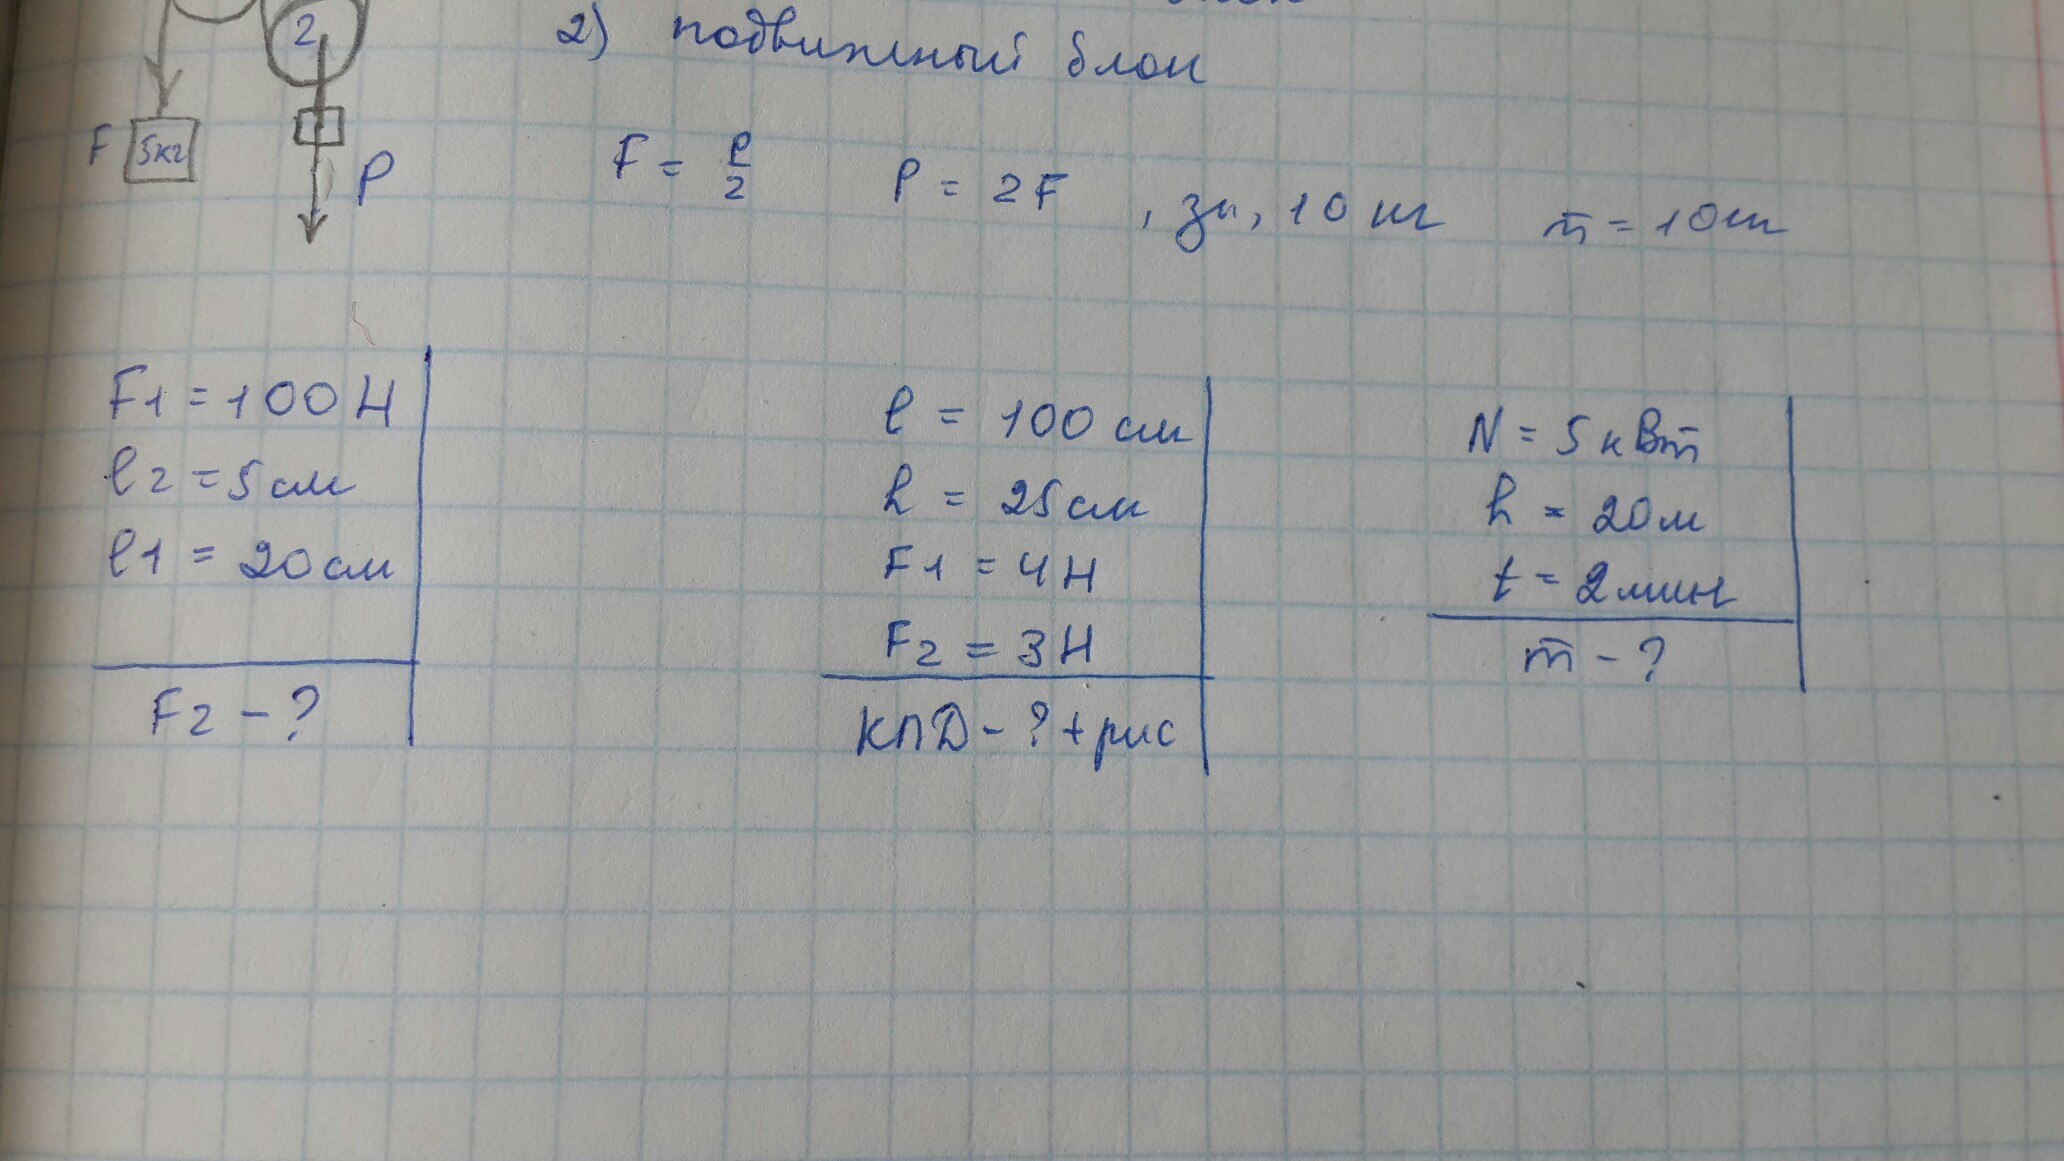 2
2) подвижный блок
F 5кг
P
F = P/2 P = 2F , зн, 10 кг m = 10кг
F1 = 100 Н
l2 = 5 см
l1 = 20 см
F2 - ?
l = 100 см
h = 25 см
F1 = 4 Н
F2 = 3 Н
КПД - ? + рис
N = 5 кВт
h = 20 м
t = 2 мин
m - ?